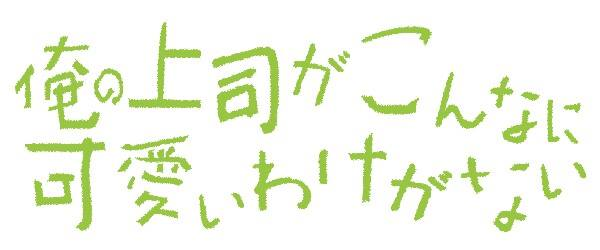 俺の上司がこんなに
可愛いわけがない